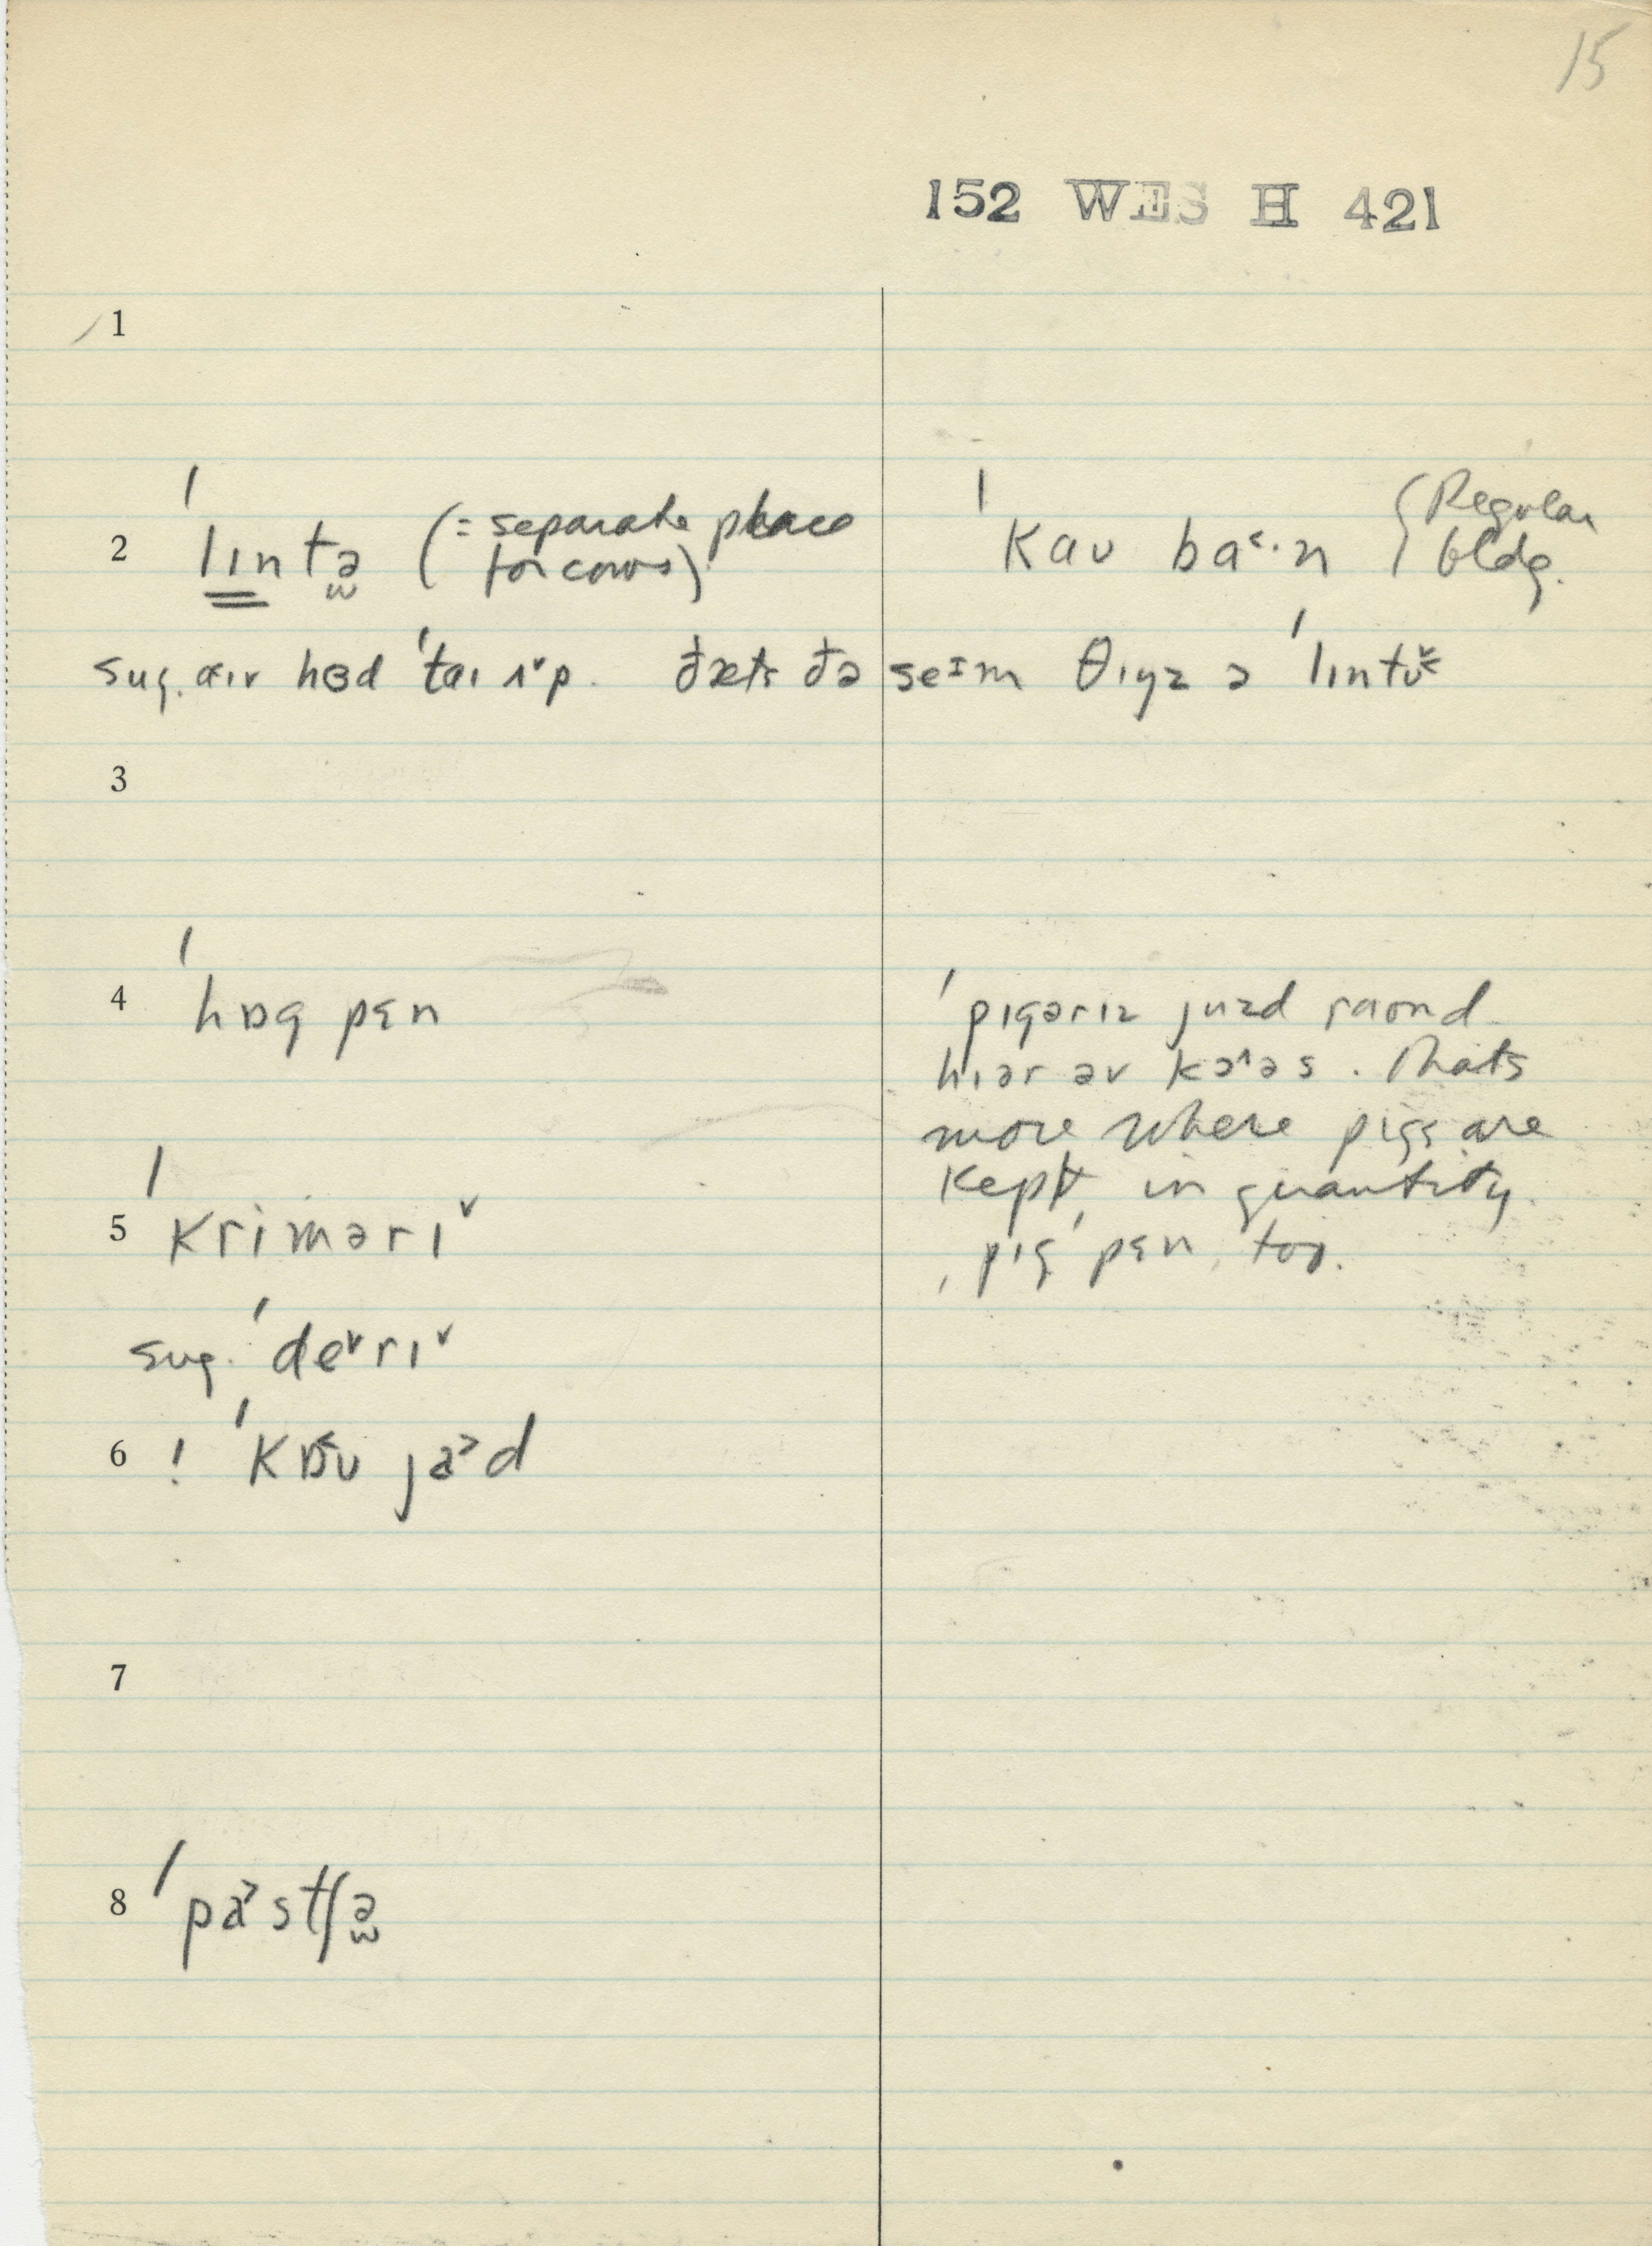 15
152 WES H 421
1
2 ˈlɪntə̫ (= separate place for cows) ˈkaʊ ba˂·n (Regular bldg.
sug. hɵd ˈtaɪ ʌ˅p. đæts đə se‍ɪm θɪŋz ə ˈlɪntə
3
4 ˈhɒg pɛn ˈpɪgərɪz juzd raʊnd
hɪər əv kə˄əs. Thats
more where pigs are
kept, in quantity.
5 ˈkrimərɪ˅ ˌpɪgˈpɛn, too.
sug. ˈde˅rɪ˅
6 ! ˈkɒ˂ʊ ja˃d
7
8 ˈpa˃stʃə̫